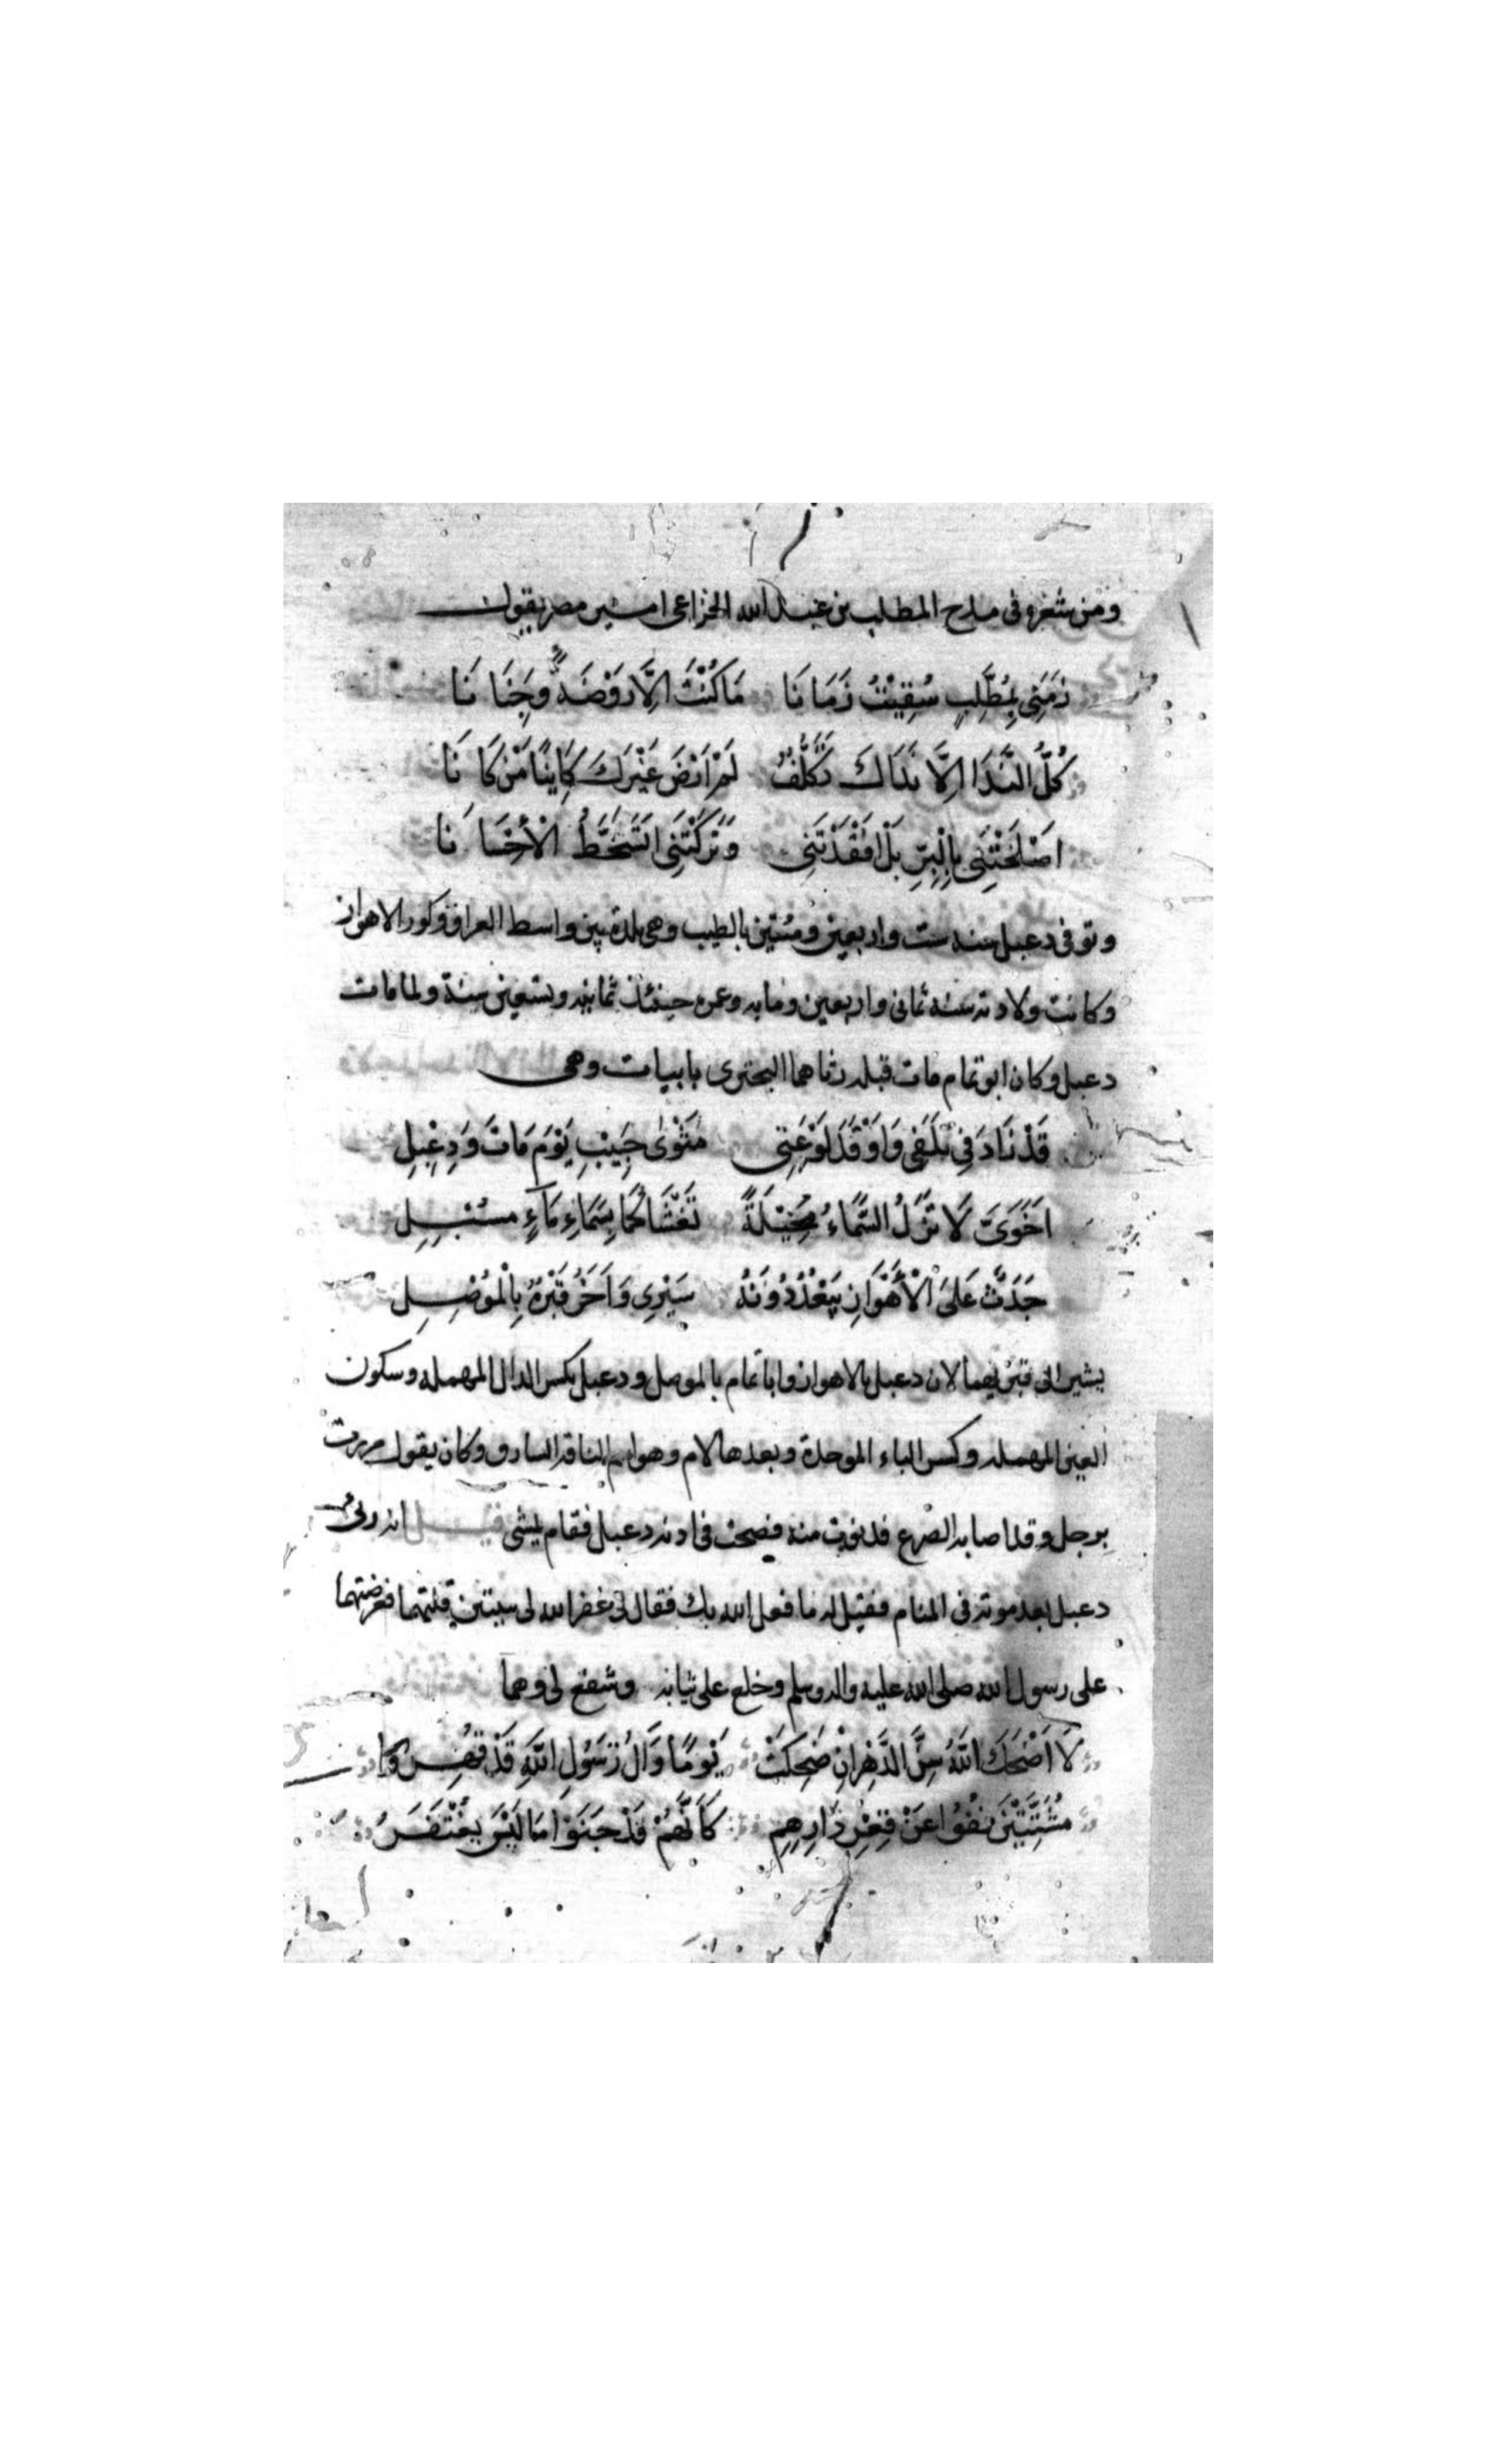 ومن شعره فى مدح المطلب بن عبد الله الخزاعى امير مصر يقول
زَمَنِى بِمُطَّلِبٍ سُقِيْتُ زَمَانَا مَا كُنْتَ اِلَّا رَوْضَةً وَجِنَانَا
كُلُّ النَّدَا اِلَّا نَدَاكَ تَكَلُّفٌ لَمْ اَرْضَ غَيْرَكَ كَايِنًا مَنْ كَانَا
اَصْلَحْتَنِى بِالْبِرِّ بَلْ اَفْقَدْتَنِى وَتَرَكْتَنِى اَتَسَخَّطُ الْأِحْسَانَا
وتوفى دعبل سنه ست واربعين ومئتين بالطيب وهى بلدة بين واسط العراق وكور الاهواز
وكانت ولادته سنه ثمانى واربعين ومايه وعمره حينئذ ثمانيه وتسعين سنة ولما مات
دعبل وكان ابو تمام مات قبله رثاهما البحترى بابيات وهى
قَدْ زَادَ فِى كَلَفِى وَاَوْقَدَ لَوْعَتِى مَثْوٰى حَبِيْبِ يَوْمَ مَاتَ وَدِعْبِلِ
اَخَوَىَّ لَا تَزَلُ السَّمَاءُ مُخِيْلَةً تَغْشَاكُمَا بِسَمَاءِ مَآءٍ مسُبِلِ
جَدَثٌ عَلَى الْأَهْوَازِ يَبْعُدُ دُوْنَهُ سَيْرِى وَاَخَرُ قَبْرُهُ بِالْمُوْصِلِ
يشير الى قبريهما لان دعبل بالاهواز وابا تمام بالموصل ودعبل بكسر الدال المهمله وسكون
العين المهمله وكسر الباء الموحدة وبعدها لام وهو اسم الناقه الشارف وكان يقول مررت
برجل وقد اصابه الصرع فدنوت منه فصحت فى اذنه دعبل فقام يمشى قيل انه رئى
دعبل بعد موته فى المنام فقيل له ما فعل الله بك فقال لى غفر الله لى ببيتين قلتهما فعرضتهما
على رسول الله صلى الله عليه واله وسلم وخلع على ثيابه وشفع لى وهما
لَا اَضْحَكَ اللهُ سِنَّ الدَّهْرِ اِنْ ضَحِكَتْ يَوْمًا وَاَلُ رَسُوْلِ اللهِ قَدْ قُهِرُوْا
مُشَتَّتِيْنَ نُفُوْا عَنْ عِقْرِ دَارِهِمِ كَاَنَّهُمْ قَدْ جَنَوْا مَا لَيْسَ يُغْتَفَرُ